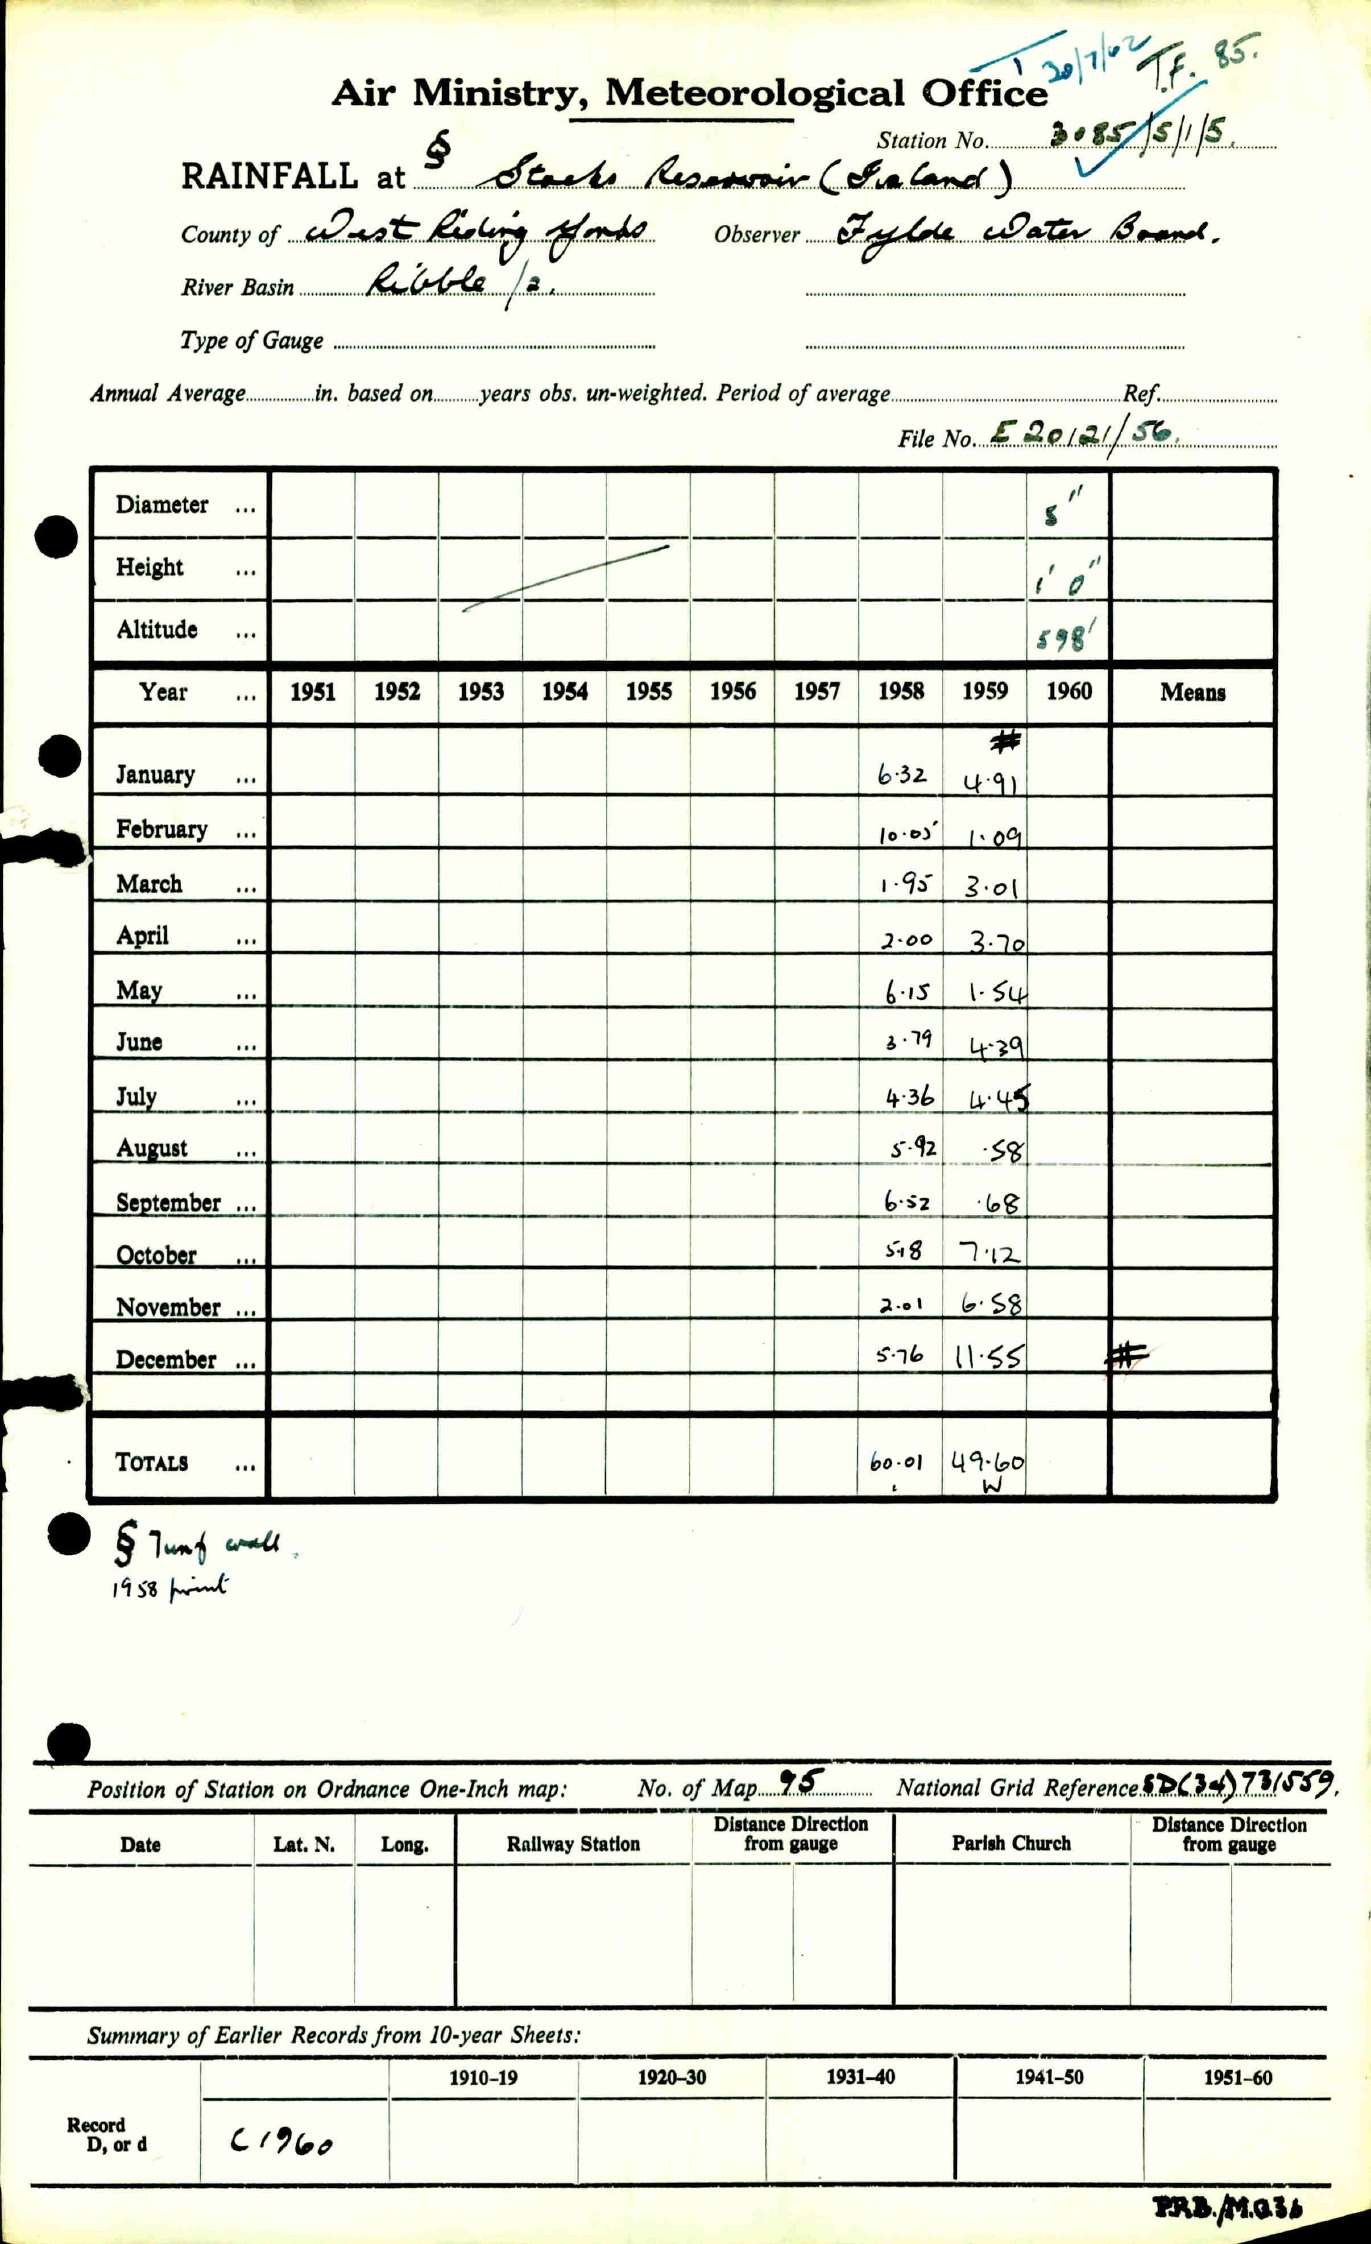 T 30/7/62 T.F. 85.
Air Ministry, Meteorological Office
Station No. 3085/5/1/5.
RAINFALL at § Stocks Reservoir
County of West Riding Yorks Observer Fylde Water Board.
River Basin Ribble /2.
Type of Gauge
Annual Average in. based on years obs. un-weighted. Period of average Ref.
File No. E 20121/56.
Diameter ... 5"
Height ... 1' 0"
Altitude ... 598'
Year ... 1951 1952 1953 1954 1955 1956 1957 1958 1959 1960 Means
#
January ... 6.32 4.91
February ... 10.05 1.09
March ... 1.95 3.01
April ... 2.00 3.70
May ... 6.15 1.54
June ... 3.79 4.39
July ... 4.36 4.45
August ... 5.92 .58
September ... 6.52 .68
October ... 5.18 7.12
November ... 2.01 6.58
December ... 5.76 11.55 #
TOTALS ... 60.01 49.60
W
§ Turf wall.
1958 print
Position of Station on Ordnance One-Inch map: No. of Map 95 National Grid Reference SD(34)731559.
Date Lat. N. Long. Railway Station Distance Direction from gauge Parish Church Distance Direction from gauge
Summary of Earlier Records from 10-year Sheets:
1910-19 1920-30 1931-40 1941-50 1951-60
Record
D, or d C1960
PRB./M.O.36